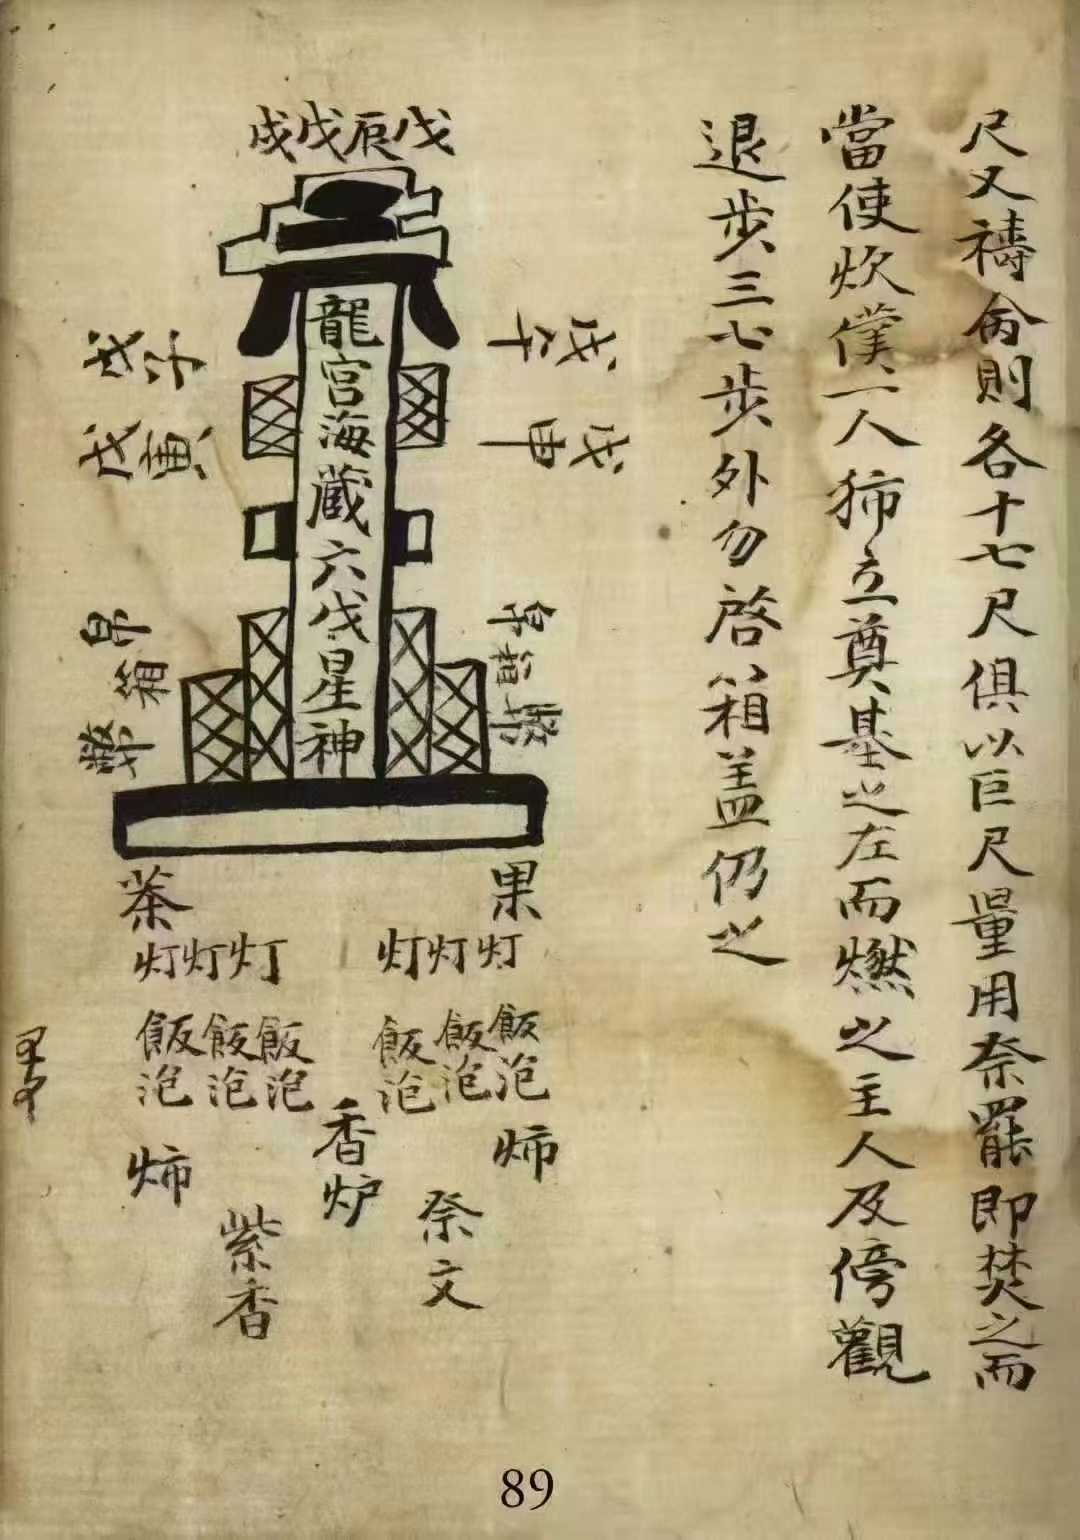 尺又禱則各十七尺俱以巨尺量用柰罷即焚之而
當使炊僕一人立奠基之左而燃之主人及傍觀
退步三七步外勿啓箱盖仍之
戊辰戊戌
戊午
戊申
龍宮海藏六戊星神
戊子
戊寅
箱
帛箱幣
果
茶
灯灯灯
灯灯灯
飯泡
飯泡
飯泡
飯泡
飯泡
飯泡
香炉
祭文
紫香
89